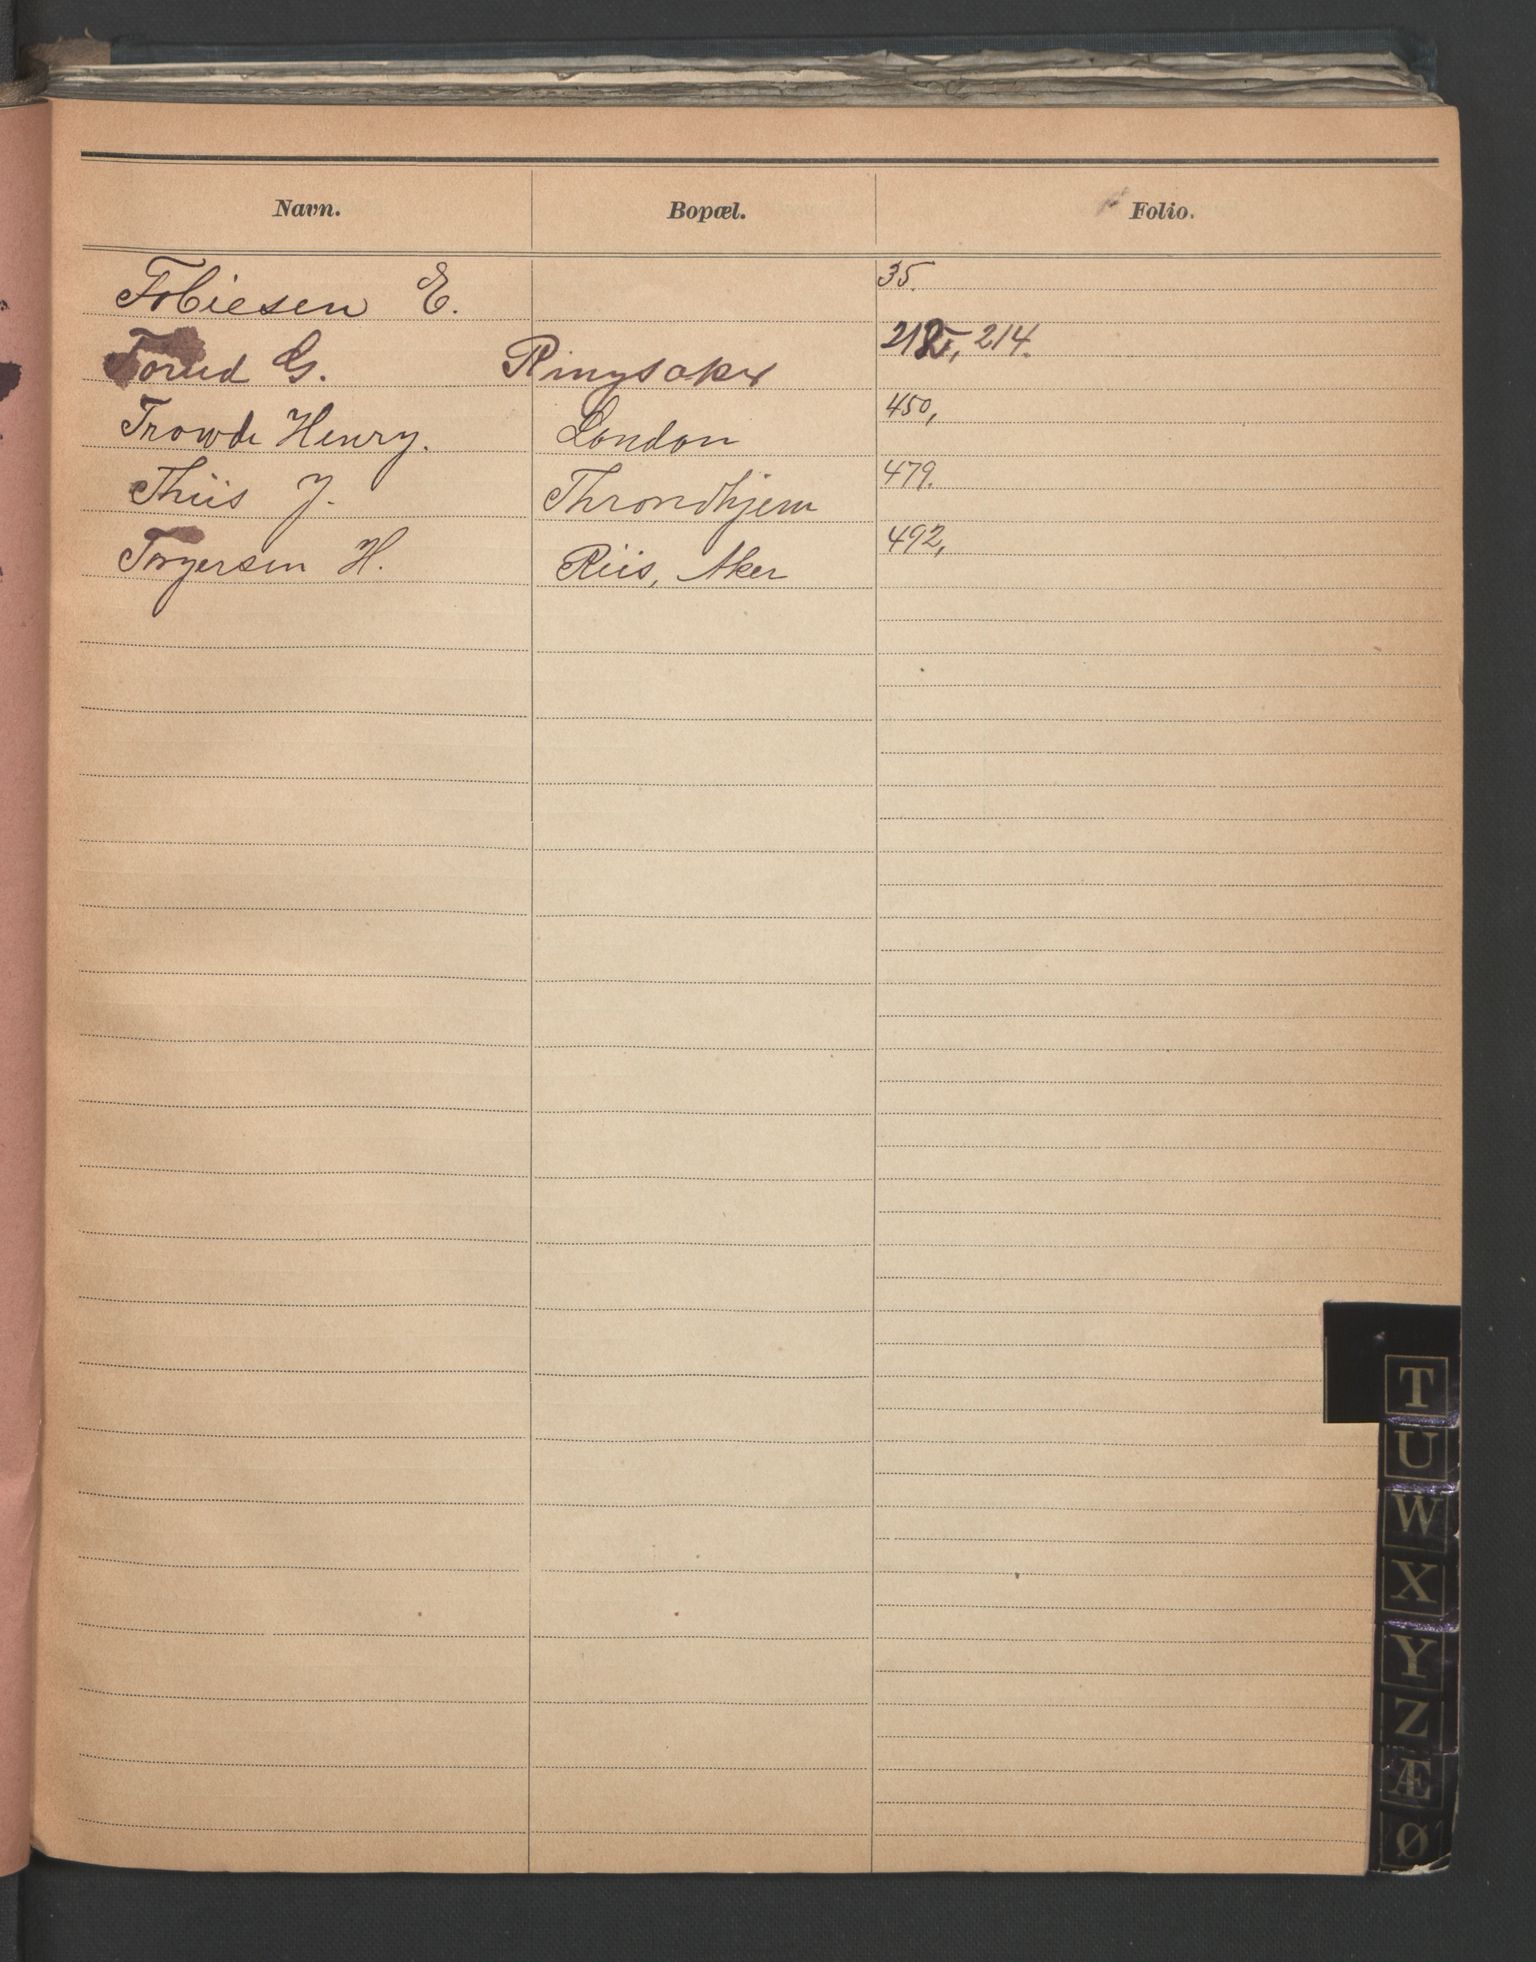 Navn. Bopæl. Folio.
Tobiesen E. 35.
Torud G. Ringsaker 214.
Trowde Henry. London 450,
Thiis J. Throndhjem 479.
Torgersen H. Riis, Aker 492,
T
U
W
X
Y
Z
Æ
Ø